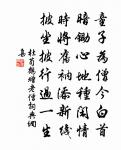 童子為僧今白首
暗鋤心地種閒情
時將舊衲添新線
披坐披行過一生
杜荀鶴贈老僧詞典網
集